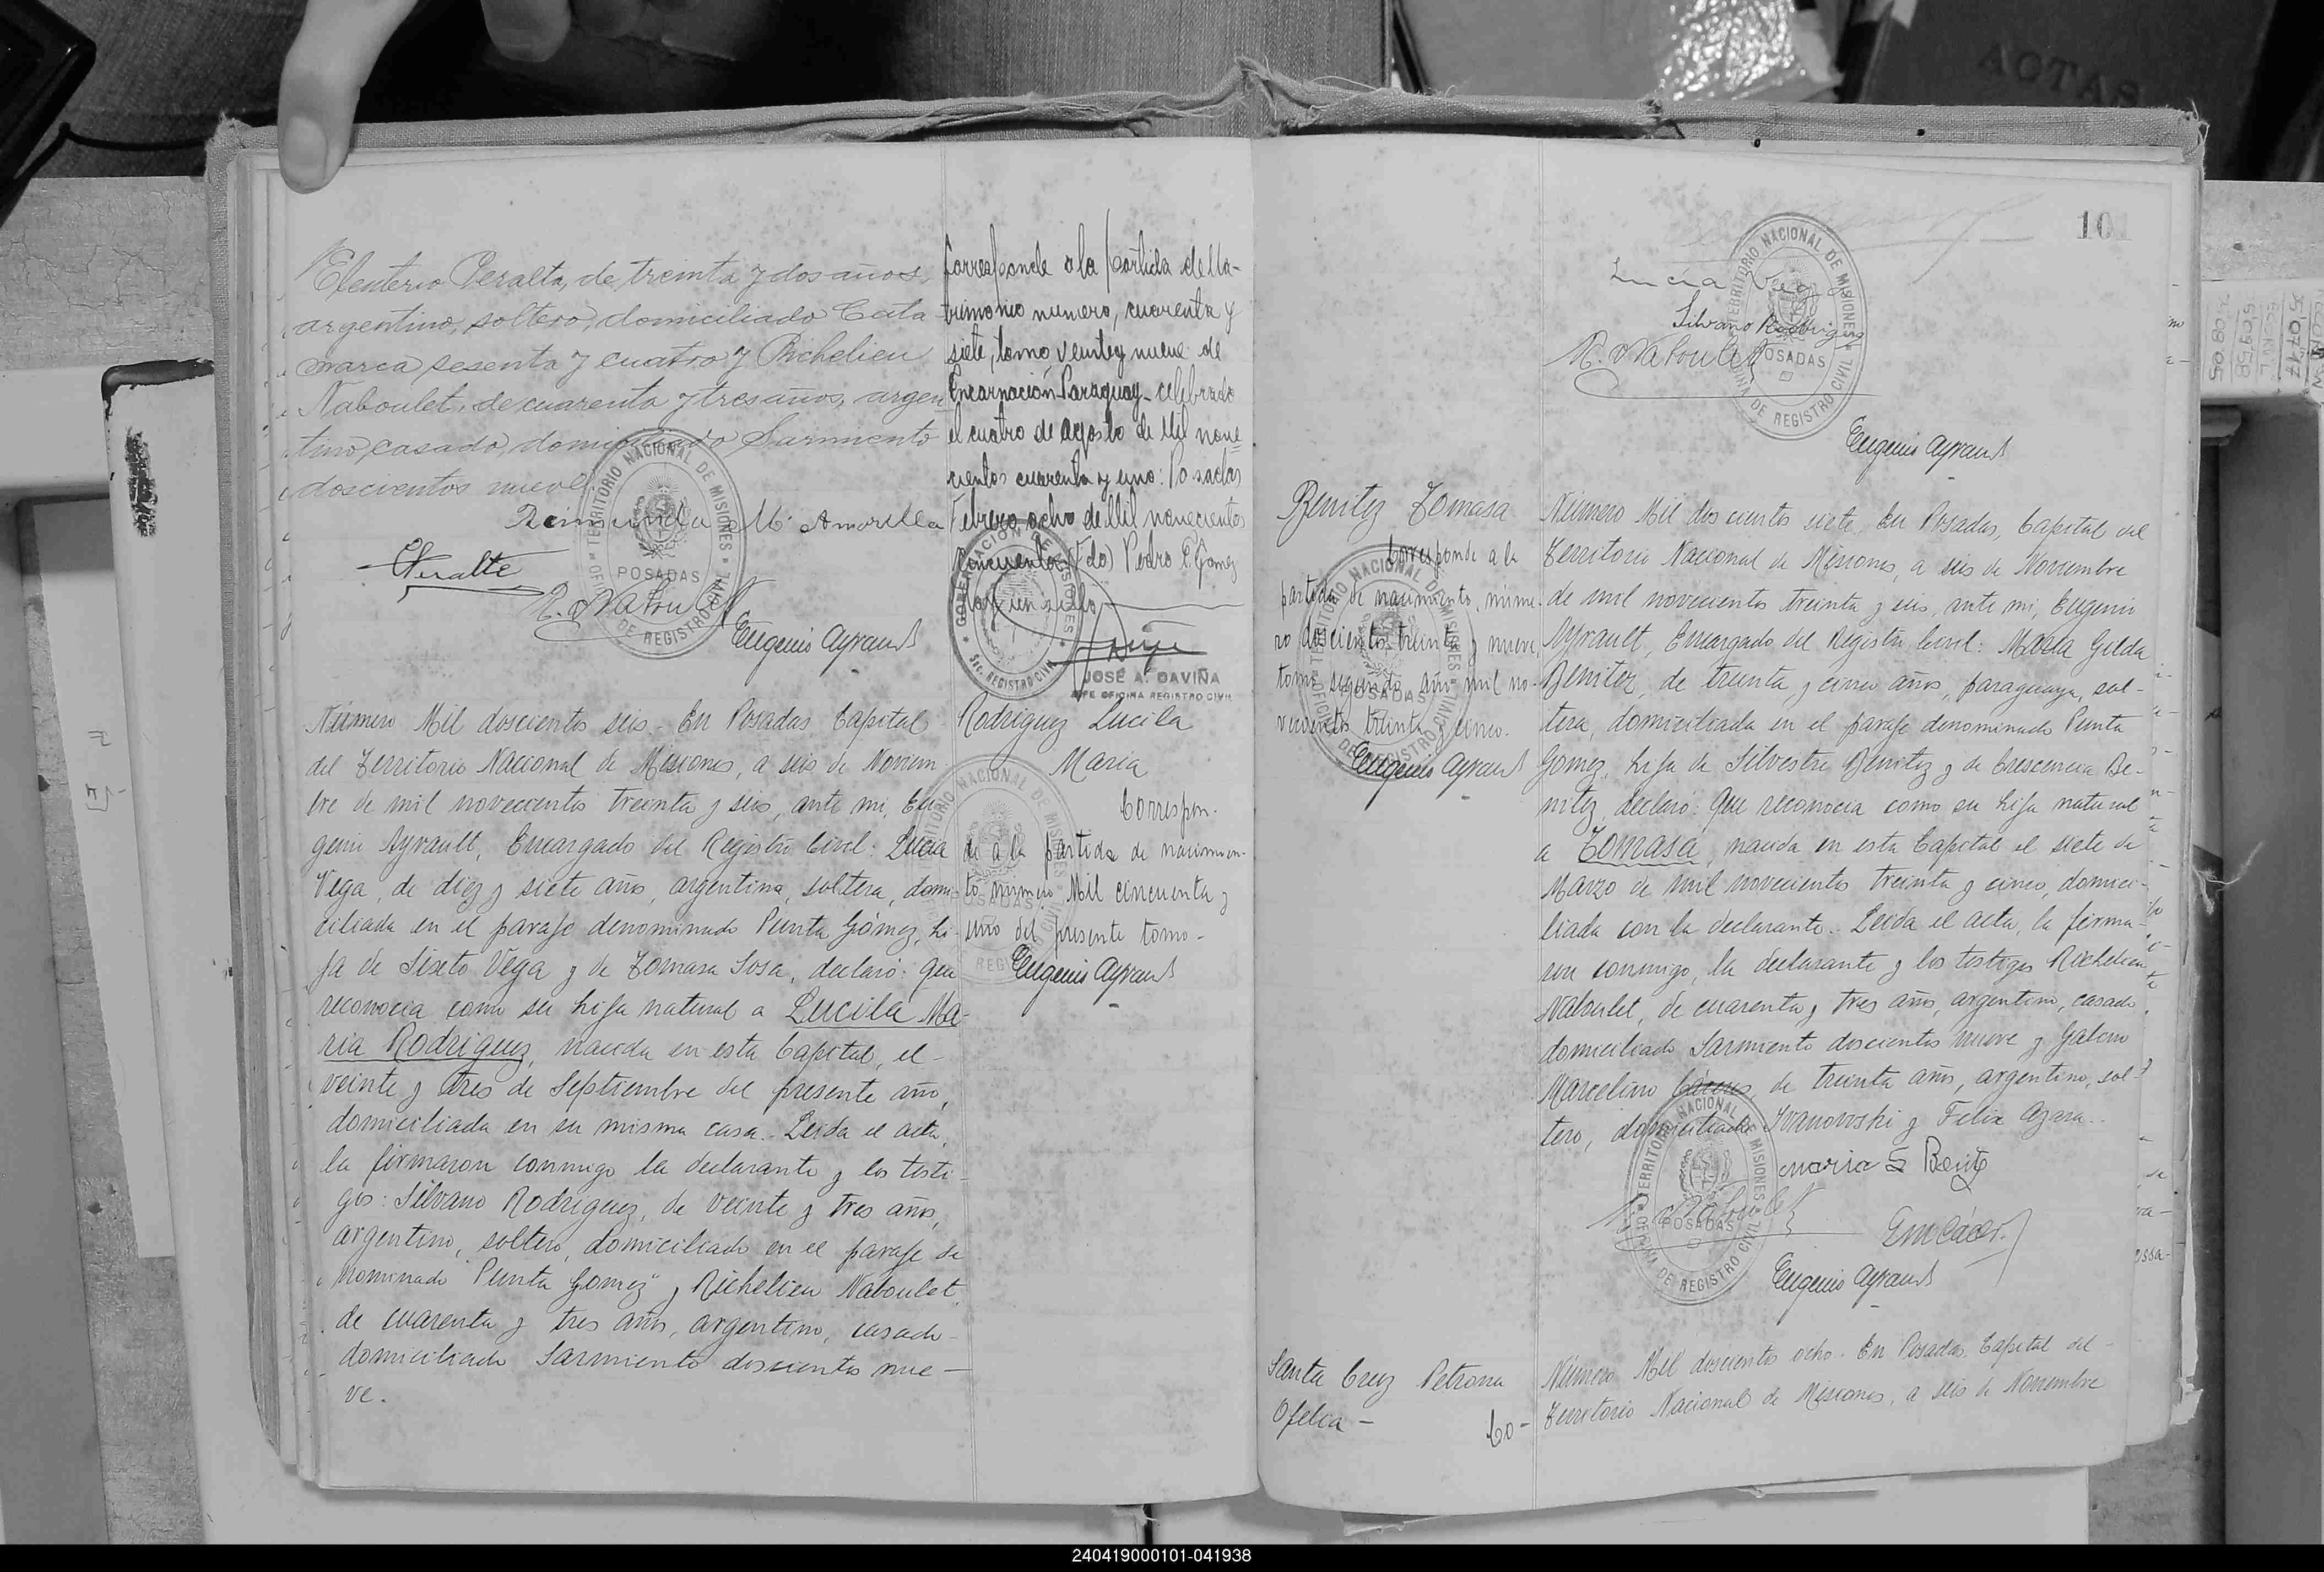 Eleuterio Peralta, de treinta y dos años,
argentino, soltero, domiciliado Cata-
marca sesenta y cuatro y Richelieu
Naboulet, de cuarenta y tres años, argen
tino, casado, domiciliado Sarmiento
doscientos nueve
Raimunda M. Amarilla
EPeralta
R. Naboulet
Eugenio Ayrault
TERRITORIO NACIONAL DE MISIONES
POSADAS
OFICINA DE REGISTRO CIVIL
Corresponde a la partida de Ma-
trimonio numero, cuarenta y
siete, tomo, veinte y nueve de
Encarnación-Paraguay- celebrado
el cuatro de agosto de Mil nove
cientos cuarenta y uno: Posadas
Febrero, ocho de Mil novecientos
Cincuenta (Fdo) Pedro E. Gomez
Hay un sello
GOBERNACION DE MISIONES
SEC. REGISTRO CIVIL
JOSÉ A. DAVIÑA
JEFE OFICINA REGISTRO CIVIL
Número Mil doscientos seis.- En Posadas, Capital
del Territorio Nacional de Misiones, a seis de Noviem
bre de mil novecientos treinta y seis, ante mi, Eu
genio Ayrault, Encargado del Registro Civil: Lucia
Vega, de diez y siete años, argentina, soltera, domi-
ciliada en el paraje denominado Punta Gómez, hi-
ja de Sixto Vega y de Tomasa Sosa, declaró: que
reconocia como su hija natural a Lucila Ma-
ria Rodriguez, nacida en esta Capital, el-
veinte y tres de Septiembre del presente año,
domiciliada en su misma casa.- Leida el acta,
la firmaron conmigo la declarante y los testi-
gos: Silvano Rodriguez, de veinte y tres años,
argentino, soltero, domiciliado en el paraje de
nominado "Punta Gomez" y Richelieu Naboulet,
de cuarenta y tres años, argentino, casado-
domiciliado Sarmiento doscientos nue-
ve.
Rodriguez Lucila
Maria
Correspon-
de a la partida de nacimien-
to número Mil cincuenta y
uno del presente tomo-
Eugenio Ayrault
TERRITORIO NACIONAL DE MISIONES
POSADAS
101
Lucia Vega
Silvano Rodriguez
R. Naboulet
Eugenio Ayrault
TERRITORIO NACIONAL DE MISIONES
POSADAS
OFICINA DE REGISTRO CIVIL
Benitez Tomasa
Corresponde a la
partida de nacimiento, núme-
ro doscientos treinta y nueve,
tomo segundo, año mil no-
vecientos treinta y cinco.
Eugenio Ayrault
TERRITORIO NACIONAL DE MISIONES
POSADAS
OFICINA DE REGISTRO CIVIL
Número Mil doscientos siete. En Posadas, Capital del
Territorio Nacional de Misiones, a seis de Noviembre
de mil novecientos treinta y seis, ante mi, Eugenio
Ayrault, Encargado del Registro Civil: Maria Gilda
Benitez, de treinta y cinco años, paraguaya, sol-
tera, domiciliada en el paraje denominado Punta
Gomez, hija de Silvestre Benitez y de Crescencia Be-
nitez, declaró: que reconocia como su hija natural
a Tomasa, nacida en esta Capital el siete de
Marzo de mil novecientos treinta y cinco, domici-
liada con la declarante.- Leida el acta, la firma-
ron conmigo, la declarante y los testigos Richelieu
Naboulet, de cuarenta y tres años, argentino, casado,
domiciliado Sarmiento doscientos nueve y Galeno
Marcelino Cáceres, de treinta años, argentino, sol-
tero, domiciliado Ivanowski y Felix Azara..
Maria G Benitez
R. Naboulet
GMCácer.
Eugenio Ayrault
TERRITORIO NACIONAL DE MISIONES
POSADAS
OFICINA DE REGISTRO CIVIL
Santa Cruz Petrona
Ofelia-
Co-
Número Mil doscientos ocho.- En Posadas, Capital del-
Territorio Nacional de Misiones, a seis de Noviembre
ACTAS
240419000101-041938